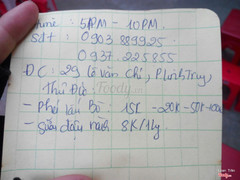 Time : 5PM - 10PM.
sđt : 0903.889925
0937.225855
ĐC : 29 Lê Văn Chí, P. Linh Trung,
Thủ Đức
Foody
- Phá lấu Bò : 15k - 20k - 50k - 100k
- Sữa đậu nành 8K/1ly